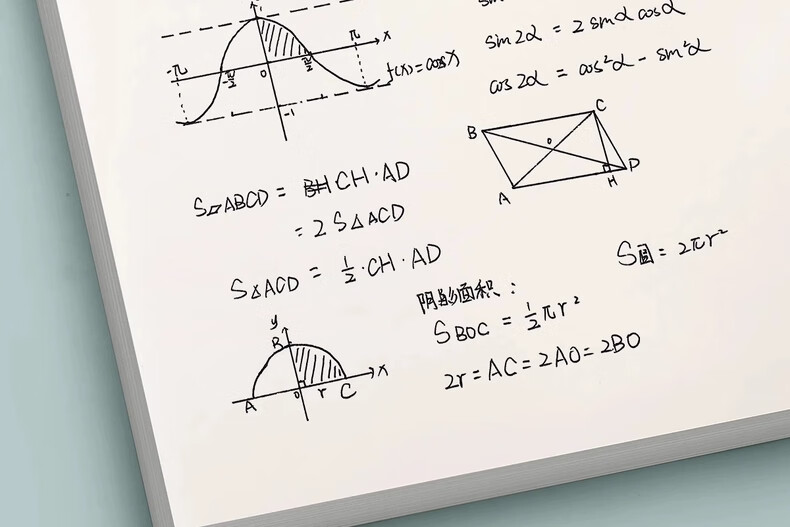 1
-π
-π/2
0
π/2
π
x
-1
f(x)=cosx
sin2α = 2 sinα cosα
cos2α = cos²α - sin²α
B
C
O
A
H
D
S▱ABCD = CH·AD
= 2S△ACD
S△ACD = 1/2·CH·AD
S圆 = 2πr²
阴影面积：
S BOC = 1/2πr²
2r = AC = 2AO = 2BO
y
B
A
O
r
C
x